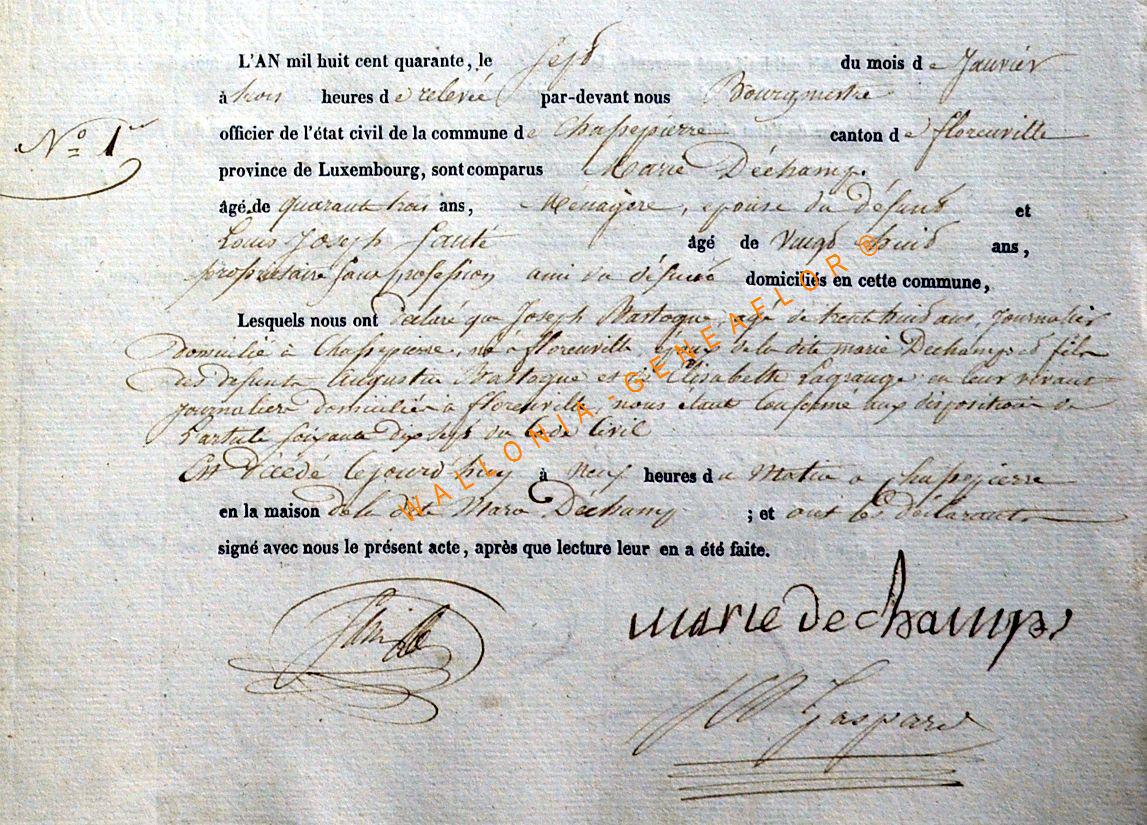 L'AN mil huit cent quarante, le sept du mois de Janvier
à trois heures de relevée par-devant nous Bourgmestre
N.º 1er
officier de l'état civil de la commune de Chassepierre canton de florenville
province de Luxembourg, sont comparus Marie Déchamp.
âgé de quarante trois ans, Ménagère, epouse du défunt et
Louis Joseph âgé de Vingt huit ans,
propriétaire sans profession ami du défunt domiciliés en cette commune,
Lesquels nous ont déclaré que Joseph Bastogne, agé de trente huit ans, Journalier
domicilié à Chassepierre, né a florenville, epoux de la dite marie Dechamp et fils
des defunts Augustin Bastogne et d'Elisabeth Lagrange en leur vivant
Journaliers domiciliés à florenville nous étant conformé aux dispositions de
l'article soixante dix sept du code Civil
Est décédé le jourd'huy à neuf heures du Matin a Chassepierre
en la maison de la dite Marie Déchamp ; et ont les déclarants
signé avec nous le présent acte, après que lecture leur en a été faite.
marie dechamps
Gaspard
WALLONIA-GENEAFLOR®